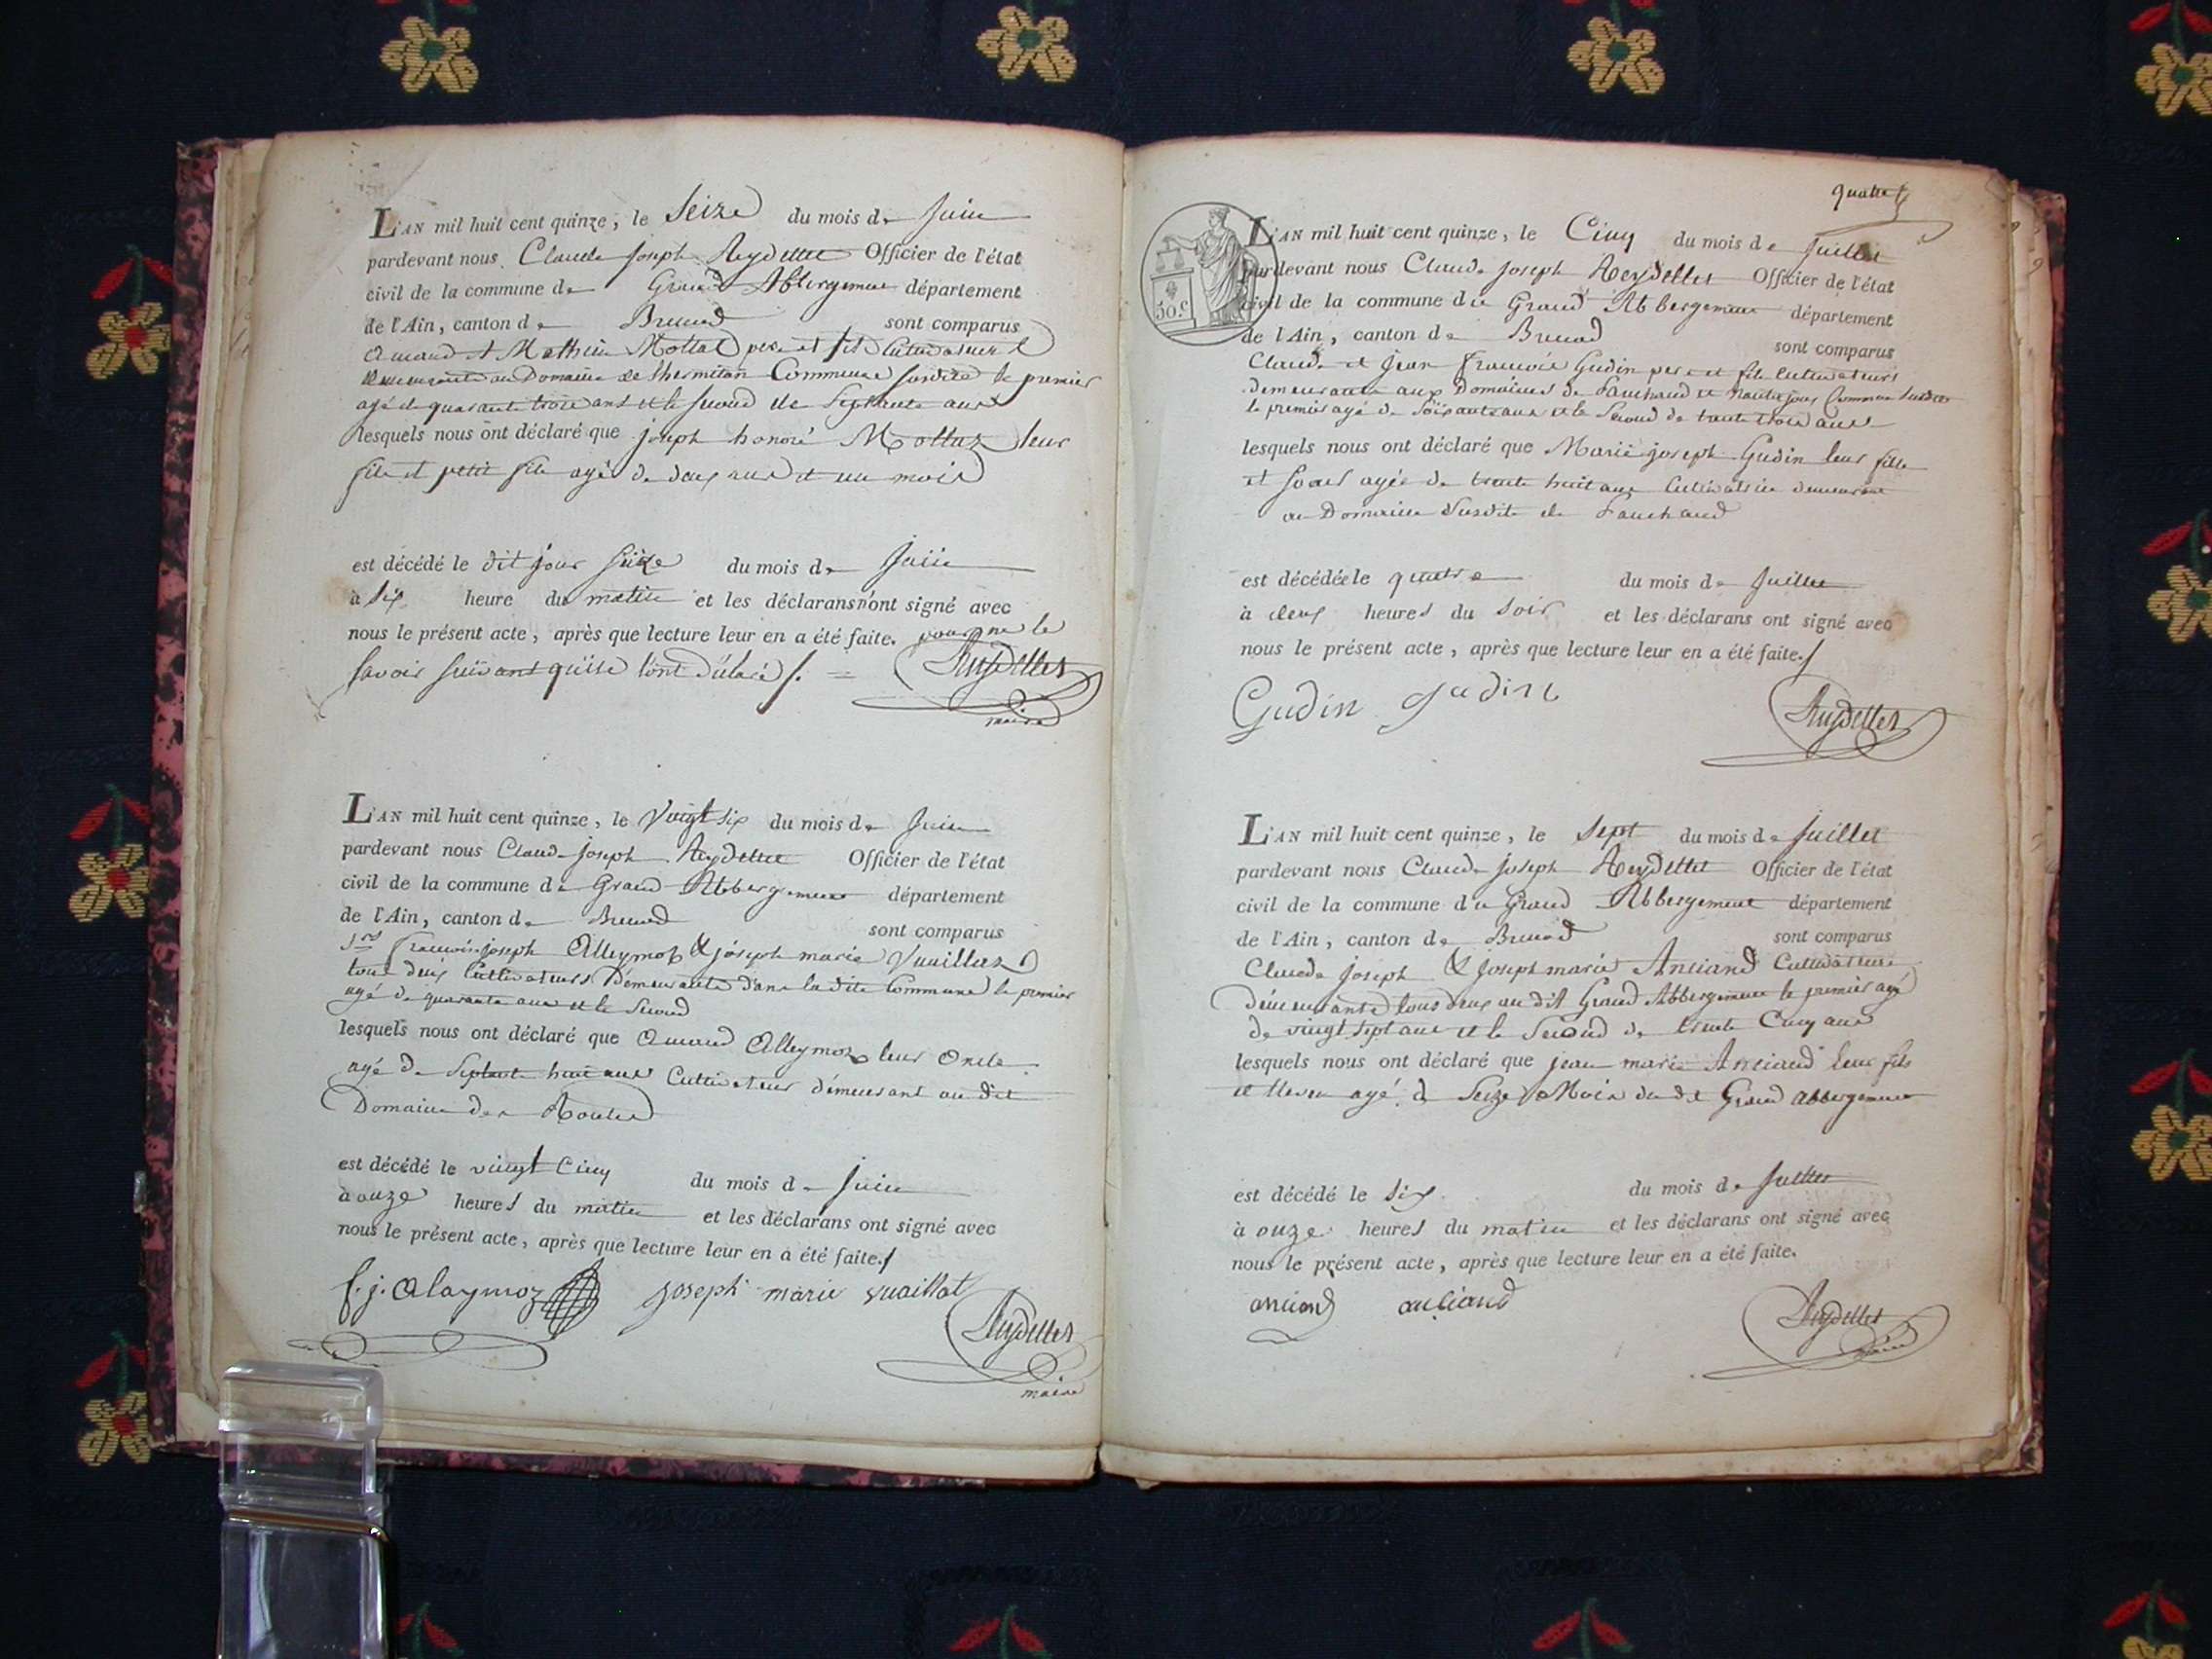 L'AN mil huit cent quinze, le Seize du mois de Juin
pardevant nous Claude Joseph Reydellet Officier de l'état
civil de la commune de Grand Abbergement département
de l'Ain, canton de Brenod sont comparus
et Mathieu Mollat pere et fils Cultivateurs
demeurants au Domaine de Commune Susdite le premier
agé de quarante trois ans et le second de Septante ans
lesquels nous ont déclaré que joseph honoré Mollaz leur
fils et petit fils agé de deux ans et un mois
est décédé le dit jour Seize du mois de Juin
à Six heure du matin et les déclarans n'ont signé avec
nous le présent acte, après que lecture leur en a été faite. pour ne le
Savoir Suivant qu'ils l'ont déclaré /. =
Reydellet
maire
L'AN mil huit cent quinze, le Vingt Six du mois de Juin
pardevant nous Claude Joseph Reydellet Officier de l'état
civil de la commune de Grand Abbergement département
de l'Ain, canton de Brenod sont comparus
Srs francois joseph Alleymoz & joseph marie Vuaillaz
tous deux Cultivateurs Demeurants dans la dite Commune le premier
agé de quarante ans et le Second
lesquels nous ont déclaré que Alleymoz leur Oncle
agé de Septante huit ans Cultivateur démeurant au dit
Domaine des
est décédé le vingt Cinq du mois de Juin
à onze heures du matin et les déclarans ont signé avec
nous le présent acte, après que lecture leur en a été faite./
f. j. alaymoz joseph marie vuaillat
Reydellet
maire
quatre
L'AN mil huit cent quinze, le Cinq du mois de Juillet
pardevant nous Claude Joseph Reydellet Officier de l'état
50.c civil de la commune du Grand Abbergement département
de l'Ain, canton de Brenod sont comparus
Claude et Jean francois Gudin pere et fils Cultivateurs
demeurants aux Domaines de Fauchaud et Commune Susdite
le premier agé de Soixante ans et le Second de trente trois ans
lesquels nous ont déclaré que Marie joseph Gudin leur fille
et Soeur agée de trente huit ans Cultivatrice demeurant
au Domaine Susdit de Fauchaud
est décédée le quatre du mois de Juillet
à deux heures du Soir et les déclarans ont signé avec
nous le présent acte, après que lecture leur en a été faite./
Gudin gudin
Reydellet
L'AN mil huit cent quinze, le Sept du mois de Juillet
pardevant nous Claude Joseph Reydellet Officier de l'état
civil de la commune du Grand Abbergement département
de l'Ain, canton de Brenod sont comparus
Claude Joseph & Joseph marie Anciand Cultivateurs
démeurants tous deux au dit Grand Abbergement le premier agé
de vingt Sept ans et le Second de trente Cinq ans
lesquels nous ont déclaré que jean marie Anciand leur fils
et Neveu agé de Seize Mois du dt Grand abbergement
est décédé le Six du mois de Juillet
à onze heures du matin et les déclarans ont signé avec
nous le présent acte, après que lecture leur en a été faite.
anciand anciand
Reydellet
maire